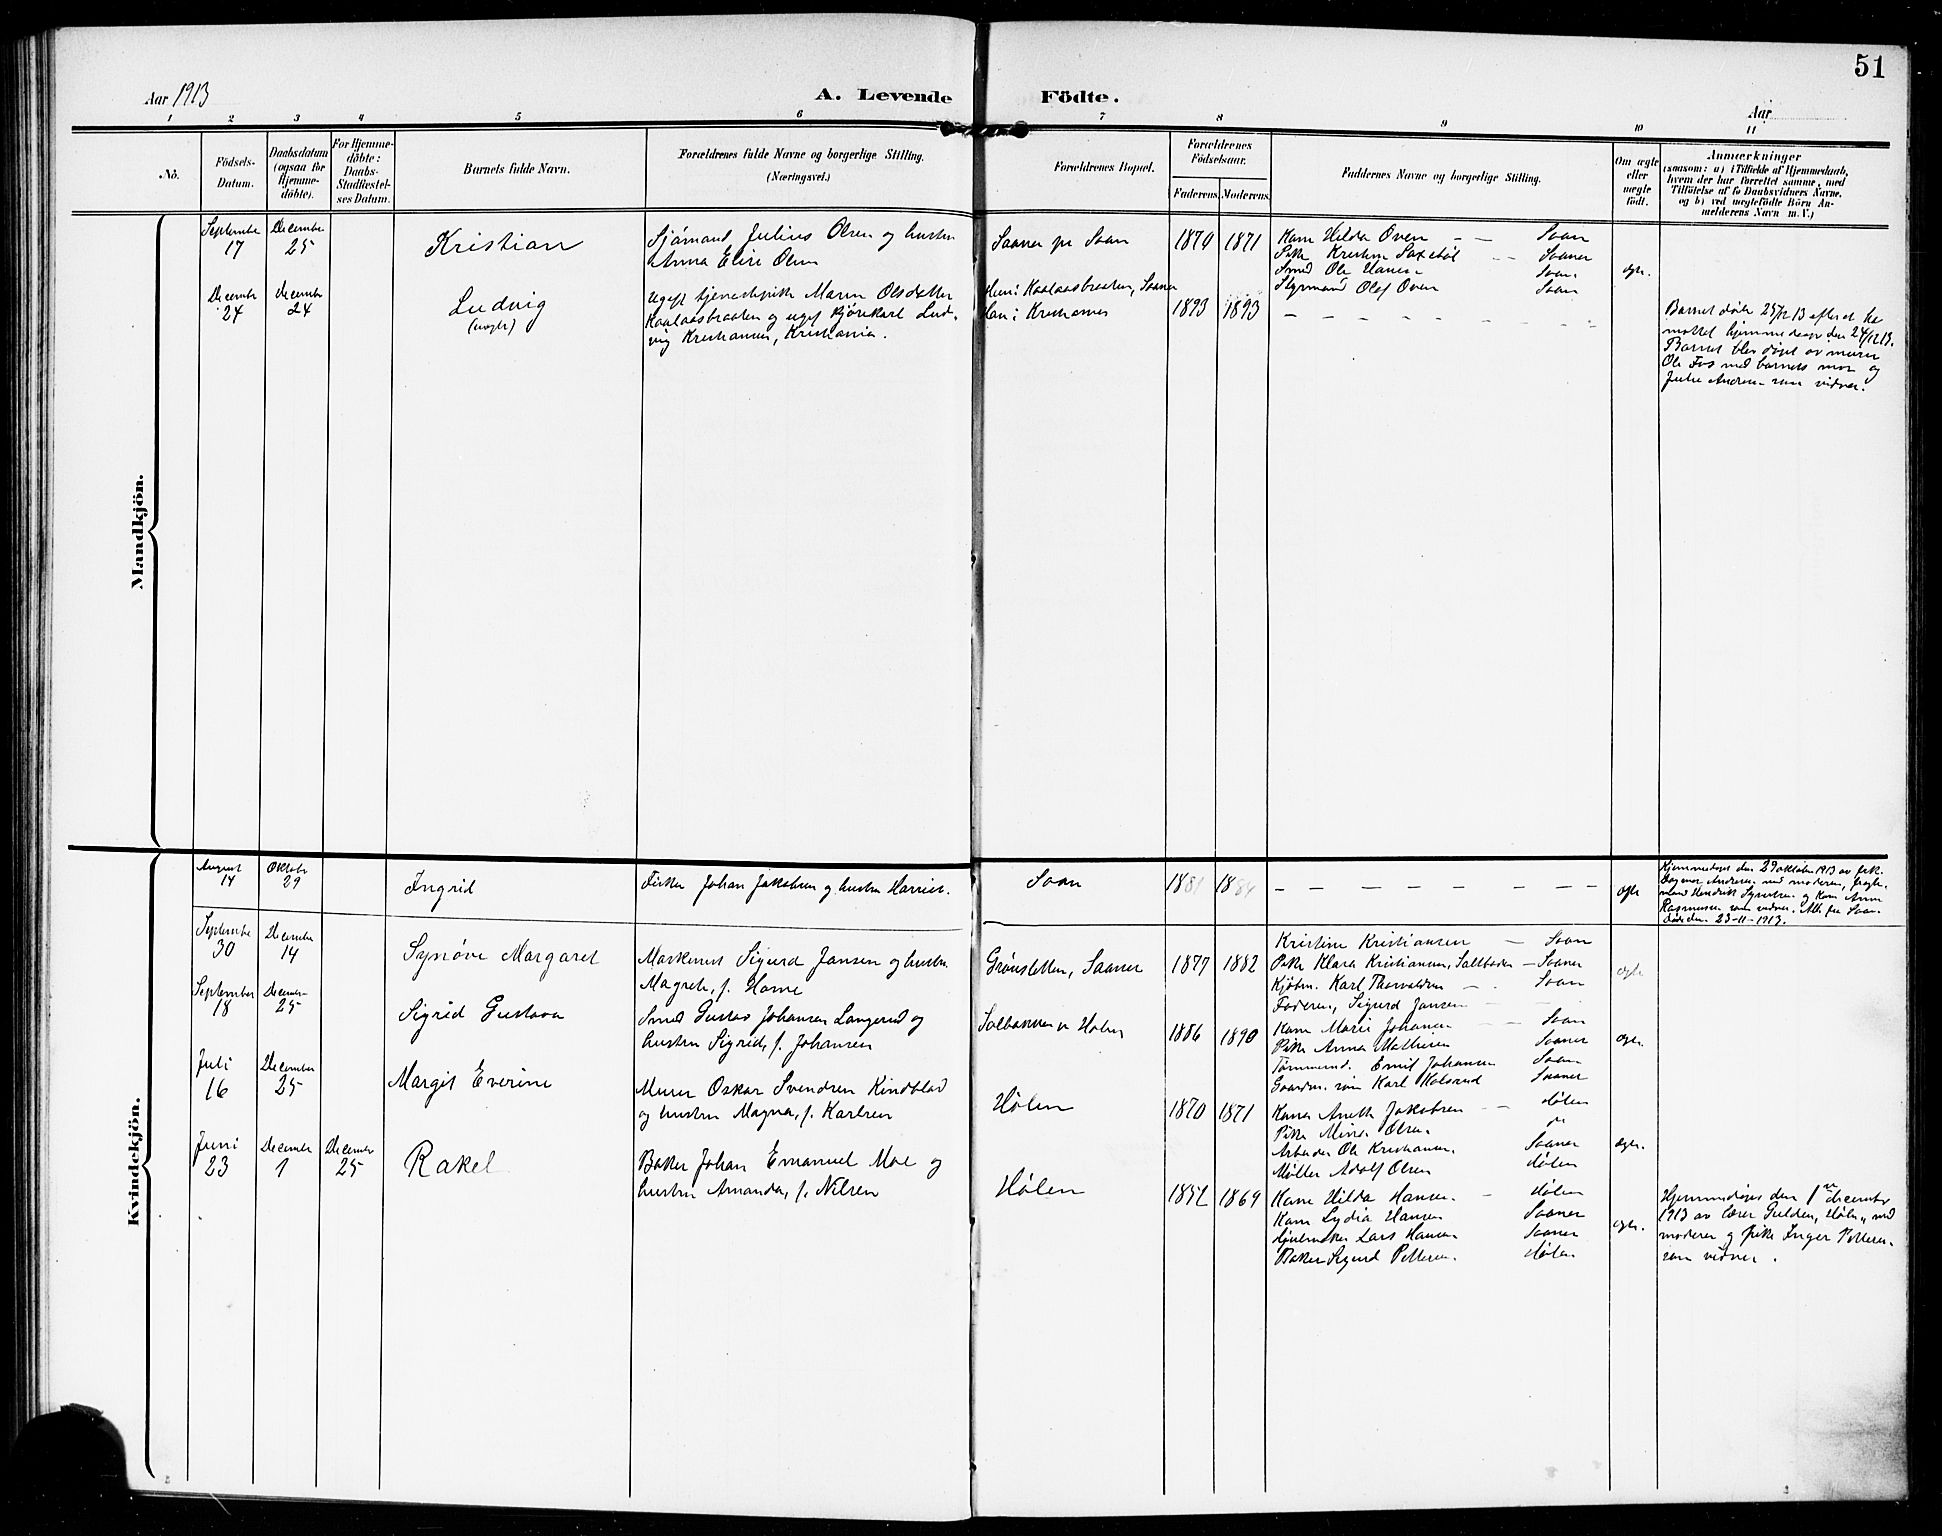 51
Aar 1913
A. Levende Födte.
Aar
1 2 3 4 5 6 7 8 9 10 11
No.
Födsels-Datum.
Daabsdatum (ogsaa for Hjemme-döbte).
For Hjemme-döbte: Daabs-Stadfæstel-ses Datum.
Barnets fulde Navn.
Forældrenes fulde Navne og borgerlige Stilling.
(Næringsvei.)
Forældrenes Bopæl.
Forældrenes Födselsaar.
Faderens. Moderens.
Faddernes Navne og borgerlige Stilling.
Om ægte eller uægte födt.
Anmærkninger
(saasom: a) i Tilfælde af Hjemmedaab,
hvem der har forrettet samme, med
Tilföielse af to Daabsvidners Navne,
og b) ved uægtefödte Börn An-
melderens Navn m. V.)
Mandkjön.
September 17
December 25
Kristian
Sjømand Julius Olsen og hustru
Anna Elise Olsen
Saaner pr Soon
1870 1871
Kone Hilda Oven — — Soon
Pike Kristine Saxebøl — Saaner
Smed Ole Hansen Soon
Styrmand Olaf Oven Soon
egte.
December 24
December 24
Ludvig
(uegte)
Ugift tjenestepike Maren Olsdatter
Kaalaasbraaten og ugift kjørekarl Lud-
vig Kristiansen, Kristiania.
Hun: Kaalaasbraaten, Saaner
Han: Kristiania
1893 1893
Barnet døde 25/12 13 efter at ha
mottat hjemmedaap den 24/12 13.
Barnet blev døpt av murer
Ole Fos med barnets mor og
Julie Andresen som vidner.
Kvindekjön.
August 14
Oktober 29
Ingrid
Fisker Johan Jakobsen og hustru Harriet.
Soon
1881 1884
egte
Hjemmedøpt den 29 oktober 1913 av frk.
Dagmar Andresen med moderen,
Hendrik Syvertsen og Kone Anna
Rasmussen som vidner. Alle fra Soon.
Døde den 23-11-1913.
September 30
December 14
Synøve Margaret
Maskinist Sigurd Jansen og hustru
Magrete, f. Horne
Grønsletten, Saaner
1877 1882
Kristine Kristiansen — Soon
Pike Klara Kristiansen, Saltboden — Saaner
Kjøbm. Karl Thorvaldsen — Soon
Faderen, Sigurd Jansen
egte
September 18
December 25
Sigrid Gustava
Smed Gustav Johansen Langerud og
hustru Sigrid, f. Johansen
1886 1890
Kone Marie Johansen — Soon
Pike Anna Mathisen Saaner
Tømmermd. Emil Johansen Soon
Gaardm. søn Karl Kolsrud Saaner
egte.
Juli 16
December 25
Margit Everine
Murer Oskar Svendsen Kindblad
og hustru Magna, f. Karlsen
Hølen
1870 1871
Kone Anette Jakobsen — Hølen
Pike Mina Olsen
Arbeider Ole Kristiansen Saaner
Møller Adolf Olsen Hølen
egte.
Juni 23
December 1
December 25
Rakel
Baker Johan Emanuel Moe og
hustru Amanda, f. Nilsen
Hølen
1869
Kone Hilda Hansen — Hølen
Kone Lydia Hansen Saaner
Hjulmaker Lars Hansen Saaner
Baker Sigurd Pettersen Hølen
egte.
Hjemmedøpt den 1 december
1913 av lærer Gulden, Hølen, med
moderen og pike Inger Pettersen
som vidner.